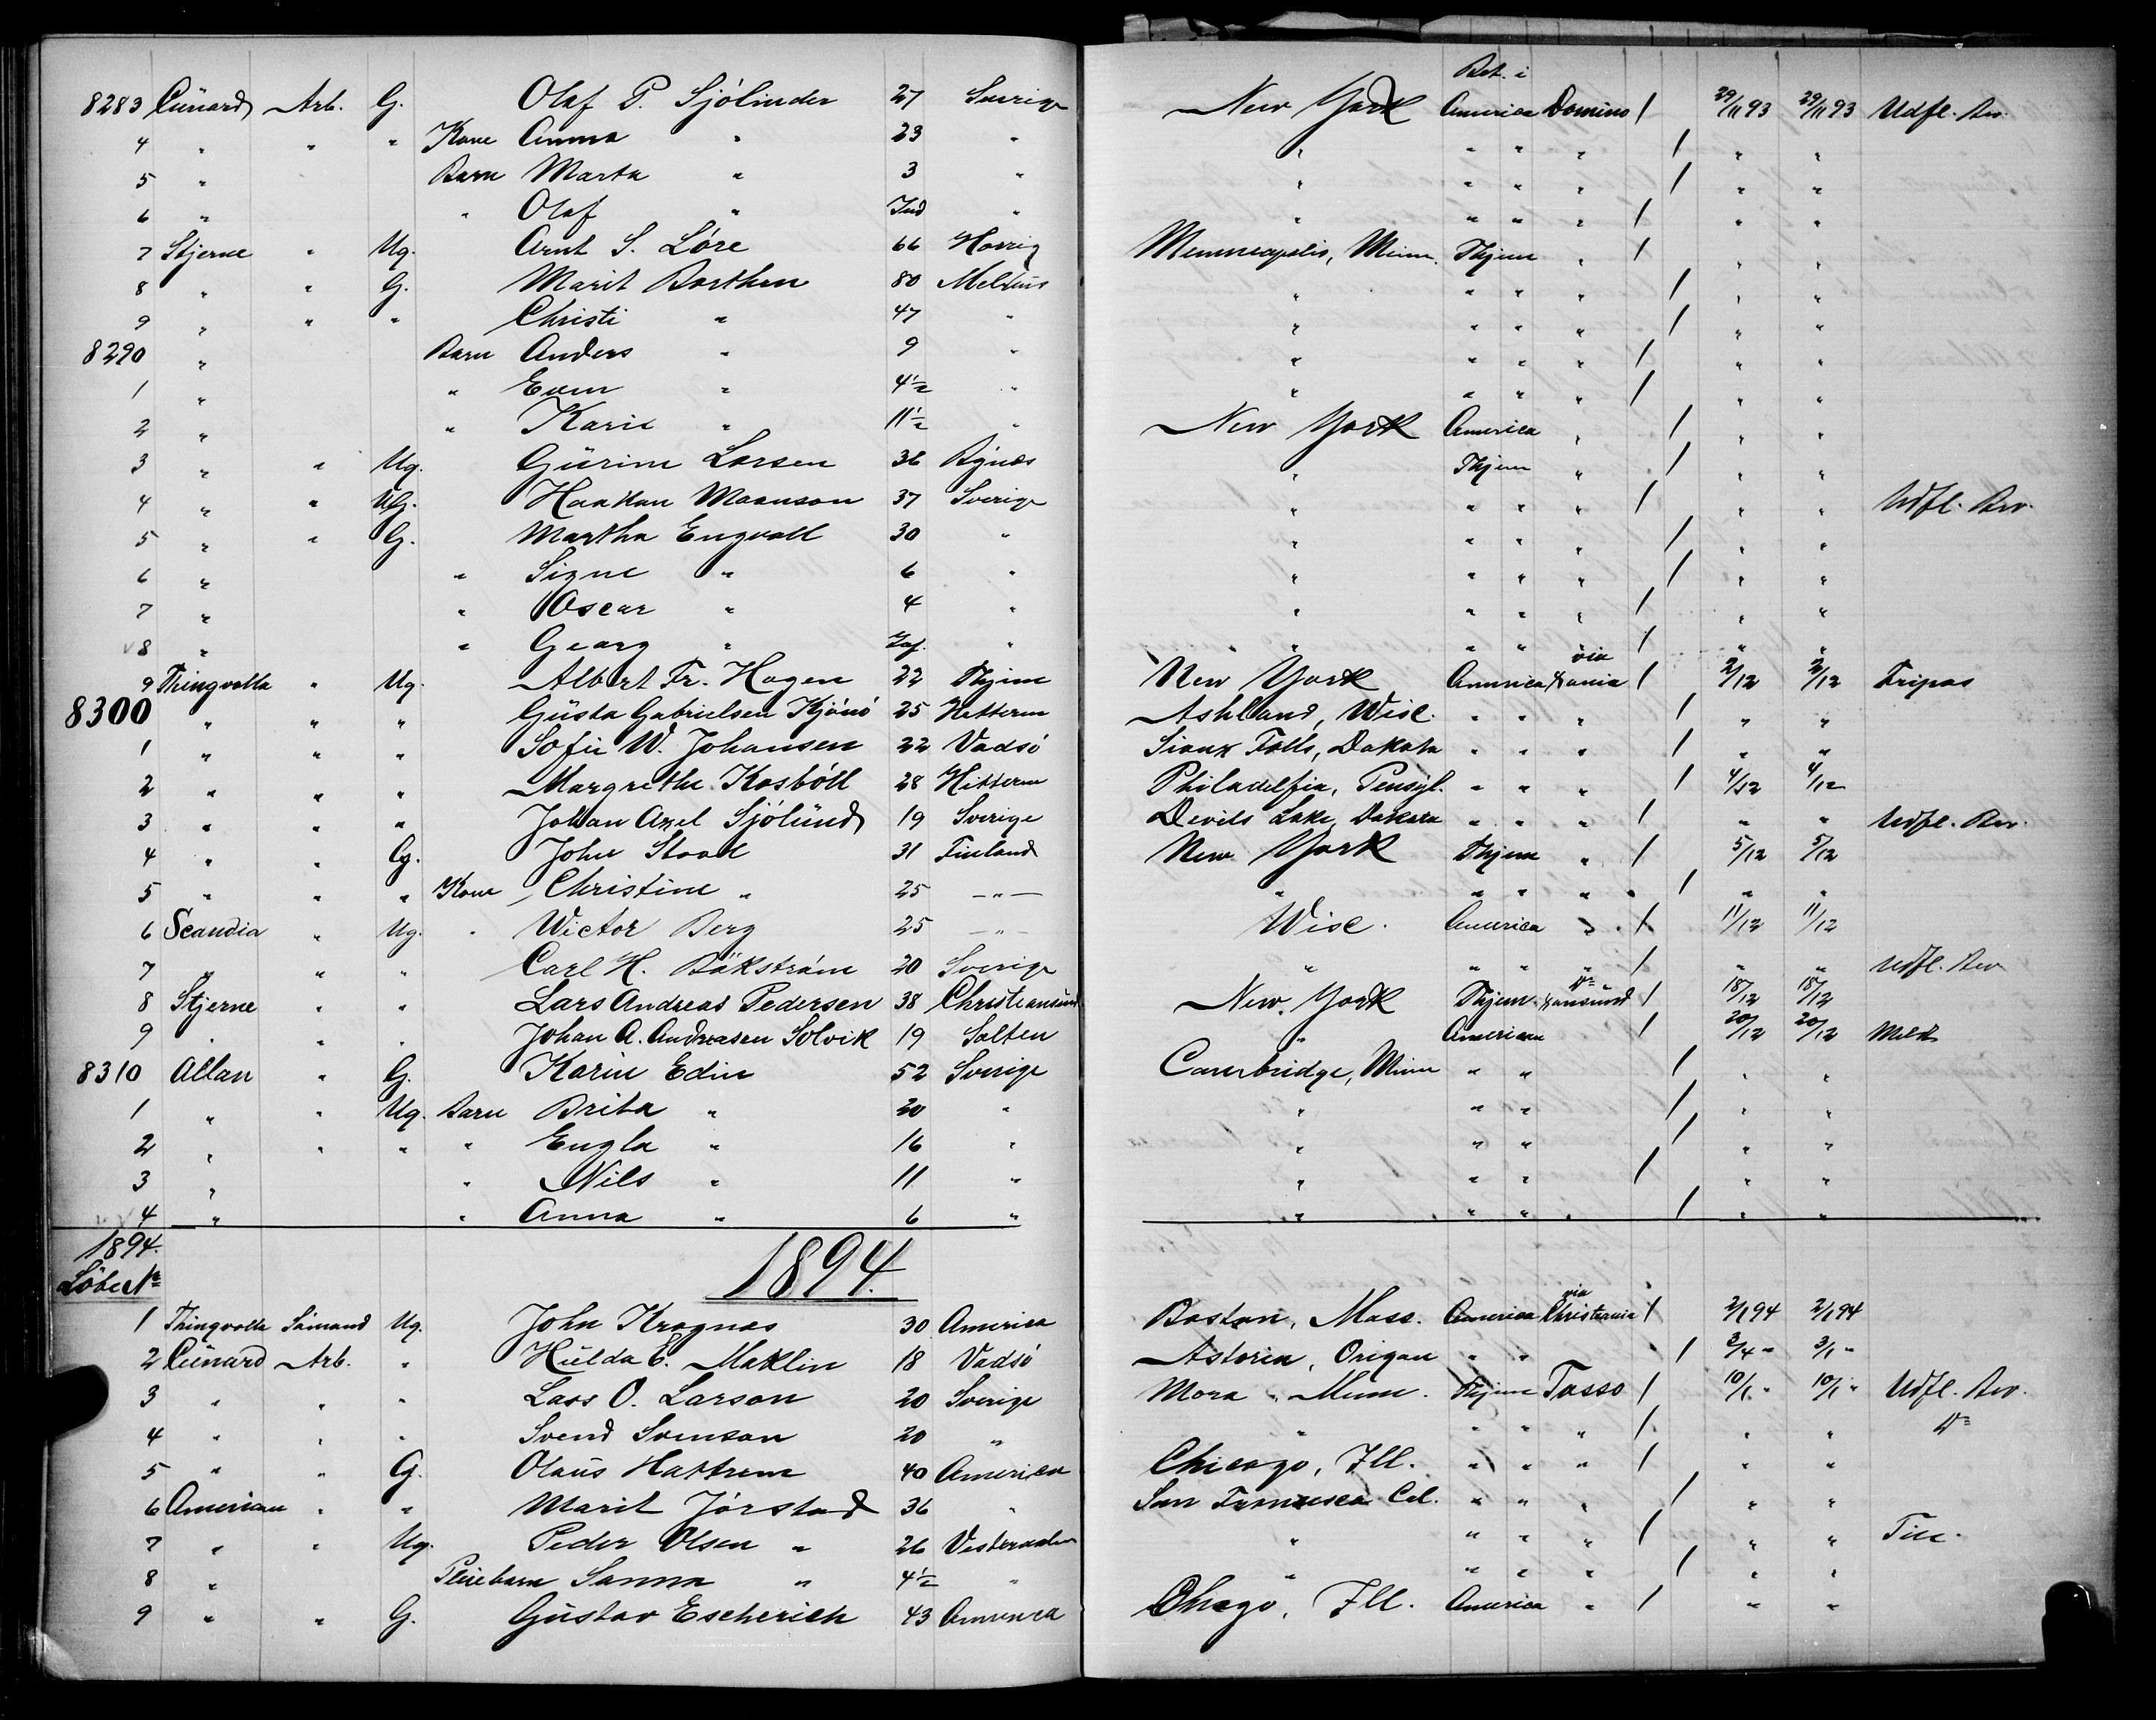 Bet. i
8283 Cünard Arb. G. Olaf P. Sjólinder 27 Sverige New York America Domino / 29/11 93 29/11 93 Udfl. Bev.
4 " " " Kone Anna " 23 " " " " " / " "
5 " Barn Marta " 3 " " " " " / " "
6 " " Olaf " Ind " " " " " / " "
7 Stjerne " Ug. Arnt S. Löre 66 Minneapolis, Minn. Thjem " / " "
8 " " G. Marit Barthen 80 Melhus " " " " / " "
9 " " " Christi " 47 " " " " " / " "
8290 " Barn Anders " 9 " " " " " / " "
1 " " Even " 4½ " " " " " / " "
2 " " Karie " 11½ " New York America " / " "
3 " " Ug. Gürine Larsen 36 Bynæs " Thjem " / " "
4 " " Ug. Haakan Maanson 37 Sverige " " " " / " " Udfl. Bev.
5 " " G. Martha Engvall 30 " " " " " / " "
6 " " Signe " 6 " " " " " / " "
7 " " Oscar " 4 " " " " " / " "
8 " " Georg " " " " " / " "
via
9 Thingvolla " Ug. Albert Fr. Hagen 22 Thjem New York America Xania / 2/12 2/12 Fripas
8300 " " " Güsta Gabrielsen Kjönö 25 Hitteren Ashland, Wisc. " " " / " "
1 " " " Sofie W. Johansen 22 Vadsö Sioux Falls, Dakota " " " / " "
2 " " " Margrethe Kosböll 28 Hitteren Philadelfia, Pensyl. " " " / 4/12 4/12
3 " " " Johan Axel Sjölünd 19 Sverige Devils Lake, Dakota " " " / " " Udfl. Bev.
4 " " G. John Staal 31 Finland New York Thjem " / 5/12 5/12
5 " " " Kone Christine " 25 — " — " " " " / " "
6 Scandia " Ug. " Wictor Berg 25 — " — Wisc. America " / 11/12 11/12
7 " " " Carl H. Bäkström 20 Sverige " " " " / " " Udfl. Bev
8 Stjerne " " Lars Andreas Pedersen 38 Christiansund New York Thjem Xansünd / 18/12 18/12
9 " " " Johan A. Andreasen Solvik 19 Salten " American / 20/12 20/12 Meldt
8310 Allan " G. Karin Edin 52 Sverige Cambridge, Minn " " / " "
1 " " Ug. Barn Brita " 20 " " " " / " "
2 " " " " Engla " 16 " " " " / " "
3 " " Nils " 11 " " " " / " "
4 " " Anna " 6 " " " " " / " "
1894.
Löbe №
1894.
via
1 Thingvolla Sömand Ug. John Kragnæs 30 America Boston, Mass. America Christiania / 2/1 94 2/1 94
2 Cünard Arb. " Hülda E. Maklin 18 Vadsö Astoria, Origan " " / 3/4 " 3/1 "
3 " " " Lars O. Larson 20 Sverige Mora, Minn. Thjem Tasso / 10/1 " 10/1 " Udfl. Bev.
4 " " " Svend Svenson 20 " " " " " / " " Do
5 " " G. Olaüs Hattrem 40 America Chicago, Ill. " " " / " "
6 American " " Marit Jörstad 36 " San Francisco Cal. " " " / " "
7 " " Ug. Peder Olsen " 26 Vesteraalen " " " " / " "
8 " Pleiebarn Sanna " 4½ " " " " " / " "
9 " " G. Güstav Escherich 43 America Chicago, Ill. America " / " "